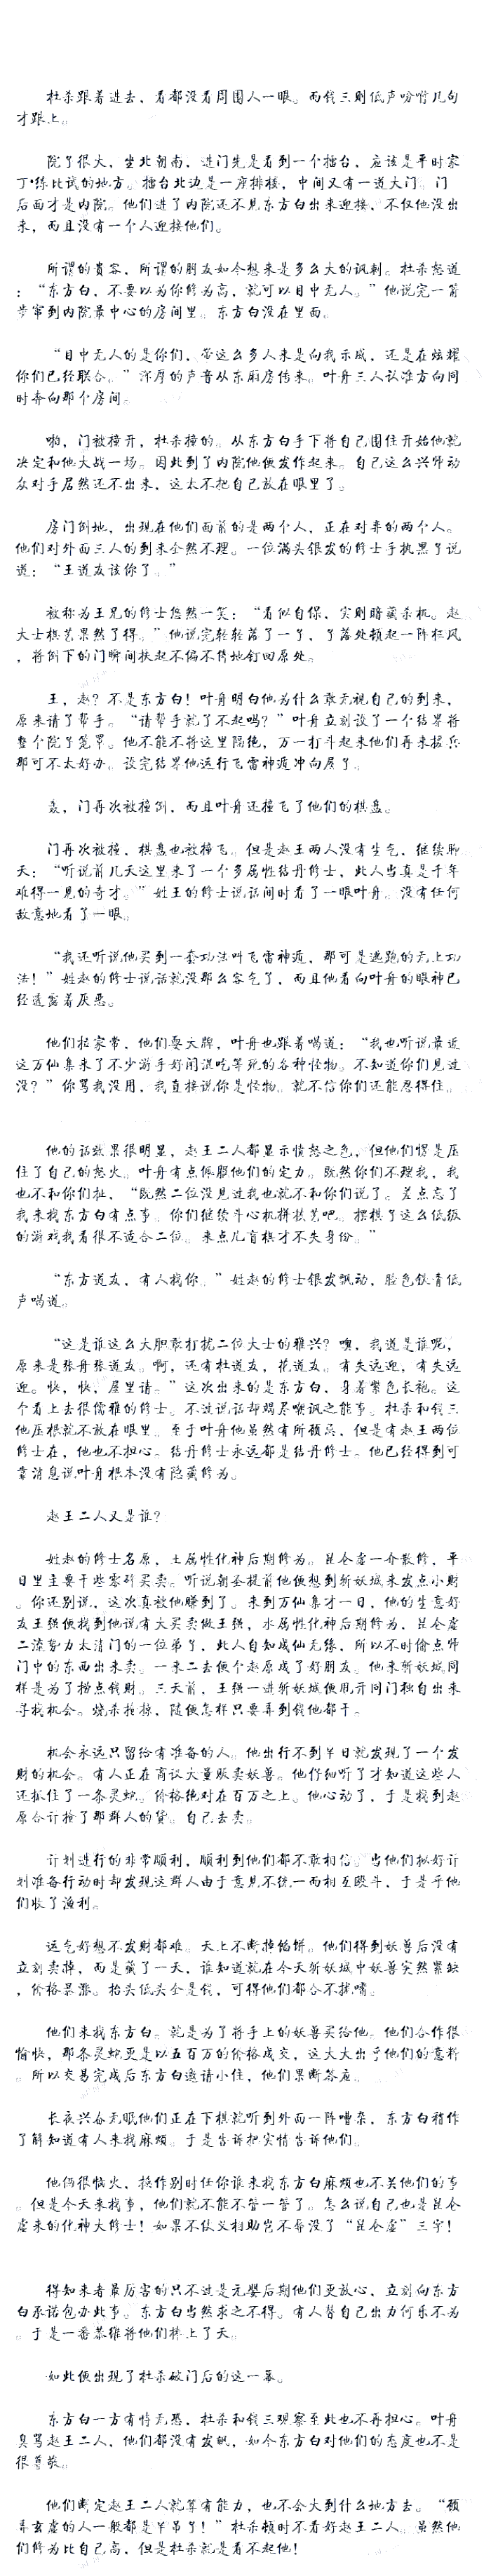 杜杀跟着进去，看都没看周围人一眼。而钱三则低声吩咐几句
才跟上。
院子很大，坐北朝南，进门先是看到一个擂台，应该是平时家
丁练比试的地方。擂台北边是一座排楼，中间又有一道大门。门
后面才是内院。他们进了内院还不见东方白出来迎接，不仅他没出
来，而且没有一个人迎接他们。
所谓的贵客，所谓的朋友如今想来是多么大的讽刺。杜杀怒道
：“东方白，不要以为你修为高，就可以目中无人。”他说完一箭
步窜到内院最中心的房间里。东方白没在里面。
“目中无人的是你们，带这么多人来是向我示威，还是在炫耀
你们已经联合。”浑厚的声音从东厢房传来。叶舟三人认准方向同
时奔向那个房间。
啪，门被撞开，杜杀撞的。从东方白手下将自己围住开始他就
决定和他大战一场。因此到了内院他便发作起来。自己这么兴师动
众对手居然还不出来，这太不把自己放在眼里了。
房门倒地，出现在他们面前的是两个人，正在对弈的两个人。
他们对外面三人的到来全然不理。一位满头银发的修士手执黑子说
道：“王道友该你了。”
被称为王兄的修士悠然一笑：“看似自保，实则暗藏杀机。赵
大士棋艺果然了得。”他说完轻轻落了一子，子落处顿起一阵狂风
，将倒下的门瞬间扶起不偏不倚地钉回原处。
王，赵？不是东方白！叶舟明白他为什么敢无视自己的到来，
原来请了帮手。“请帮手就了不起吗？”叶舟立刻设了一个结界将
整个院子笼罩。他不能不将这里隔绝，万一打斗起来他们再来援兵
那可不太好办。设完结界他运行飞雷神遁冲向屋子。
轰，门再次被撞倒，而且叶舟还撞飞了他们的棋盘。
门再次被撞，棋盘也被撞飞。但是赵王两人没有生气，继续聊
天：“听说前几天这里来了一个多属性结丹修士，此人当真是千年
难得一见的奇才。”姓王的修士说话间时看了一眼叶舟。没有任何
敌意地看了一眼。
“我还听说他买到一套功法叫飞雷神遁，那可是逃跑的无上功
法！”姓赵的修士说话就没那么客气了，而且他看向叶舟的眼神已
经透露着厌恶。
他们拉家常，他们耍大牌，叶舟也跟着喝道：“我也听说最近
这万仙集来了不少游手好闲混吃等死的各种怪物。不知道你们见过
没？”你骂我没用，我直接说你是怪物。就不信你们还能忍得住。
他的话效果很明显，赵王二人都显示愤怒之色，但他们愣是压
住了自己的怒火。叶舟有点佩服他们的定力。既然你们不理我，我
也不和你们扯，“既然二位没见过我也就不和你们说了。差点忘了
我来找东方白有点事。你们继续斗心机拼棋艺吧。摆棋子这么低级
的游戏我看很不适合二位。来点儿盲棋才不失身份。”
“东方道友，有人找你。”姓赵的修士银发飘动，脸色铁青低
声喝道。
“这是谁这么大胆敢打扰二位大士的雅兴？噢，我道是谁呢，
原来是张舟张道友。啊，还有杜道友，花道友。有失远迎，有失远
迎。快，快，屋里请。”这次出来的是东方白，身着紫色长袍。这
个看上去很儒雅的修士。不过说话却竭尽嘲讽之能事。杜杀和钱三
他压根就不放在眼里。至于叶舟他虽然有所顾忌，但是有赵王两位
修士在，他也不担心。结丹修士永远都是结丹修士。他已经得到可
靠消息说叶舟根本没有隐藏修为。
赵王二人又是谁？
姓赵的修士名原，土属性化神后期修为。昆仑虚一介散修，平
日里主要干些零碎买卖。听说朝圣提前他便想到斩妖城来发点小财
。你还别说，这次真被他赚到了。来到万仙集才一日，他的生意好
友王强便找到他说有大买卖做王强，水属性化神后期修为，昆仑虚
二流势力太清门的一位弟子，此人自知成仙无缘，所以不时偷点师
门中的东西出来卖。一来二去便个赵原成了好朋友。他来斩妖城同
样是为了捞点钱财。三天前，王强一进斩妖城便甩开同门独自出来
寻找机会。烧杀抢掠，随便怎样只要弄到钱他都干。
机会永远只留给有准备的人。他出行不到半日就发现了一个发
财的机会。有人正在商议大量贩卖妖兽。他仔细听了才知道这些人
还抓住了一条灵蛇。价格绝对在百万之上。他心动了，于是找到赵
原合计抢了那群人的货。自己去卖。
计划进行的非常顺利，顺利到他们都不敢相信。当他们拟好计
划准备行动时却发现这群人由于意见不统一而相互殴斗，于是乎他
们收了渔利。
运气好想不发财都难。天上不断掉馅饼。他们得到妖兽后没有
立刻卖掉，而是藏了一天，谁知道就在今天斩妖城中妖兽突然紧缺
，价格暴涨。抬头低头全是钱，可得他们都合不拢嘴。
他们来找东方白。就是为了将手上的妖兽买给他。他们合作很
愉快，那条灵蛇更是以五百万的价格成交，这大大出乎他们的意料
。所以交易完成后东方白邀请小住，他们果断答应。
长夜兴奋无眠他们正在下棋就听到外面一阵嘈杂，东方白稍作
了解知道有人来找麻烦。于是告诉把实情告诉他们。
他俩很恼火，换作别时任你谁来找东方白麻烦也不关他们的事
。但是今天来找事，他们就不能不管一管了。怎么说自己也是昆仑
虚来的化神大修士！如果不仗义相助岂不辱没了“昆仑虚”三字！
得知来者最厉害的只不过是元婴后期他们更放心，立刻向东方
白承诺包办此事。东方白当然求之不得。有人替自己出力何乐不为
。于是一番恭维将他们捧上了天。
如此便出现了杜杀破门后的这一幕。
东方白一方有恃无恐，杜杀和钱三观察至此也不再担心。叶舟
臭骂赵王二人，他们都没有发飙，如今东方白对他们的态度也不是
很尊敬。
他们断定赵王二人就算有能力，也不会大到什么地方去。“硕
弄玄虚的人一般都是半吊子！”杜杀顿时不看好赵王二人。虽然他
们修为比自己高，但是杜杀就是看不起他！